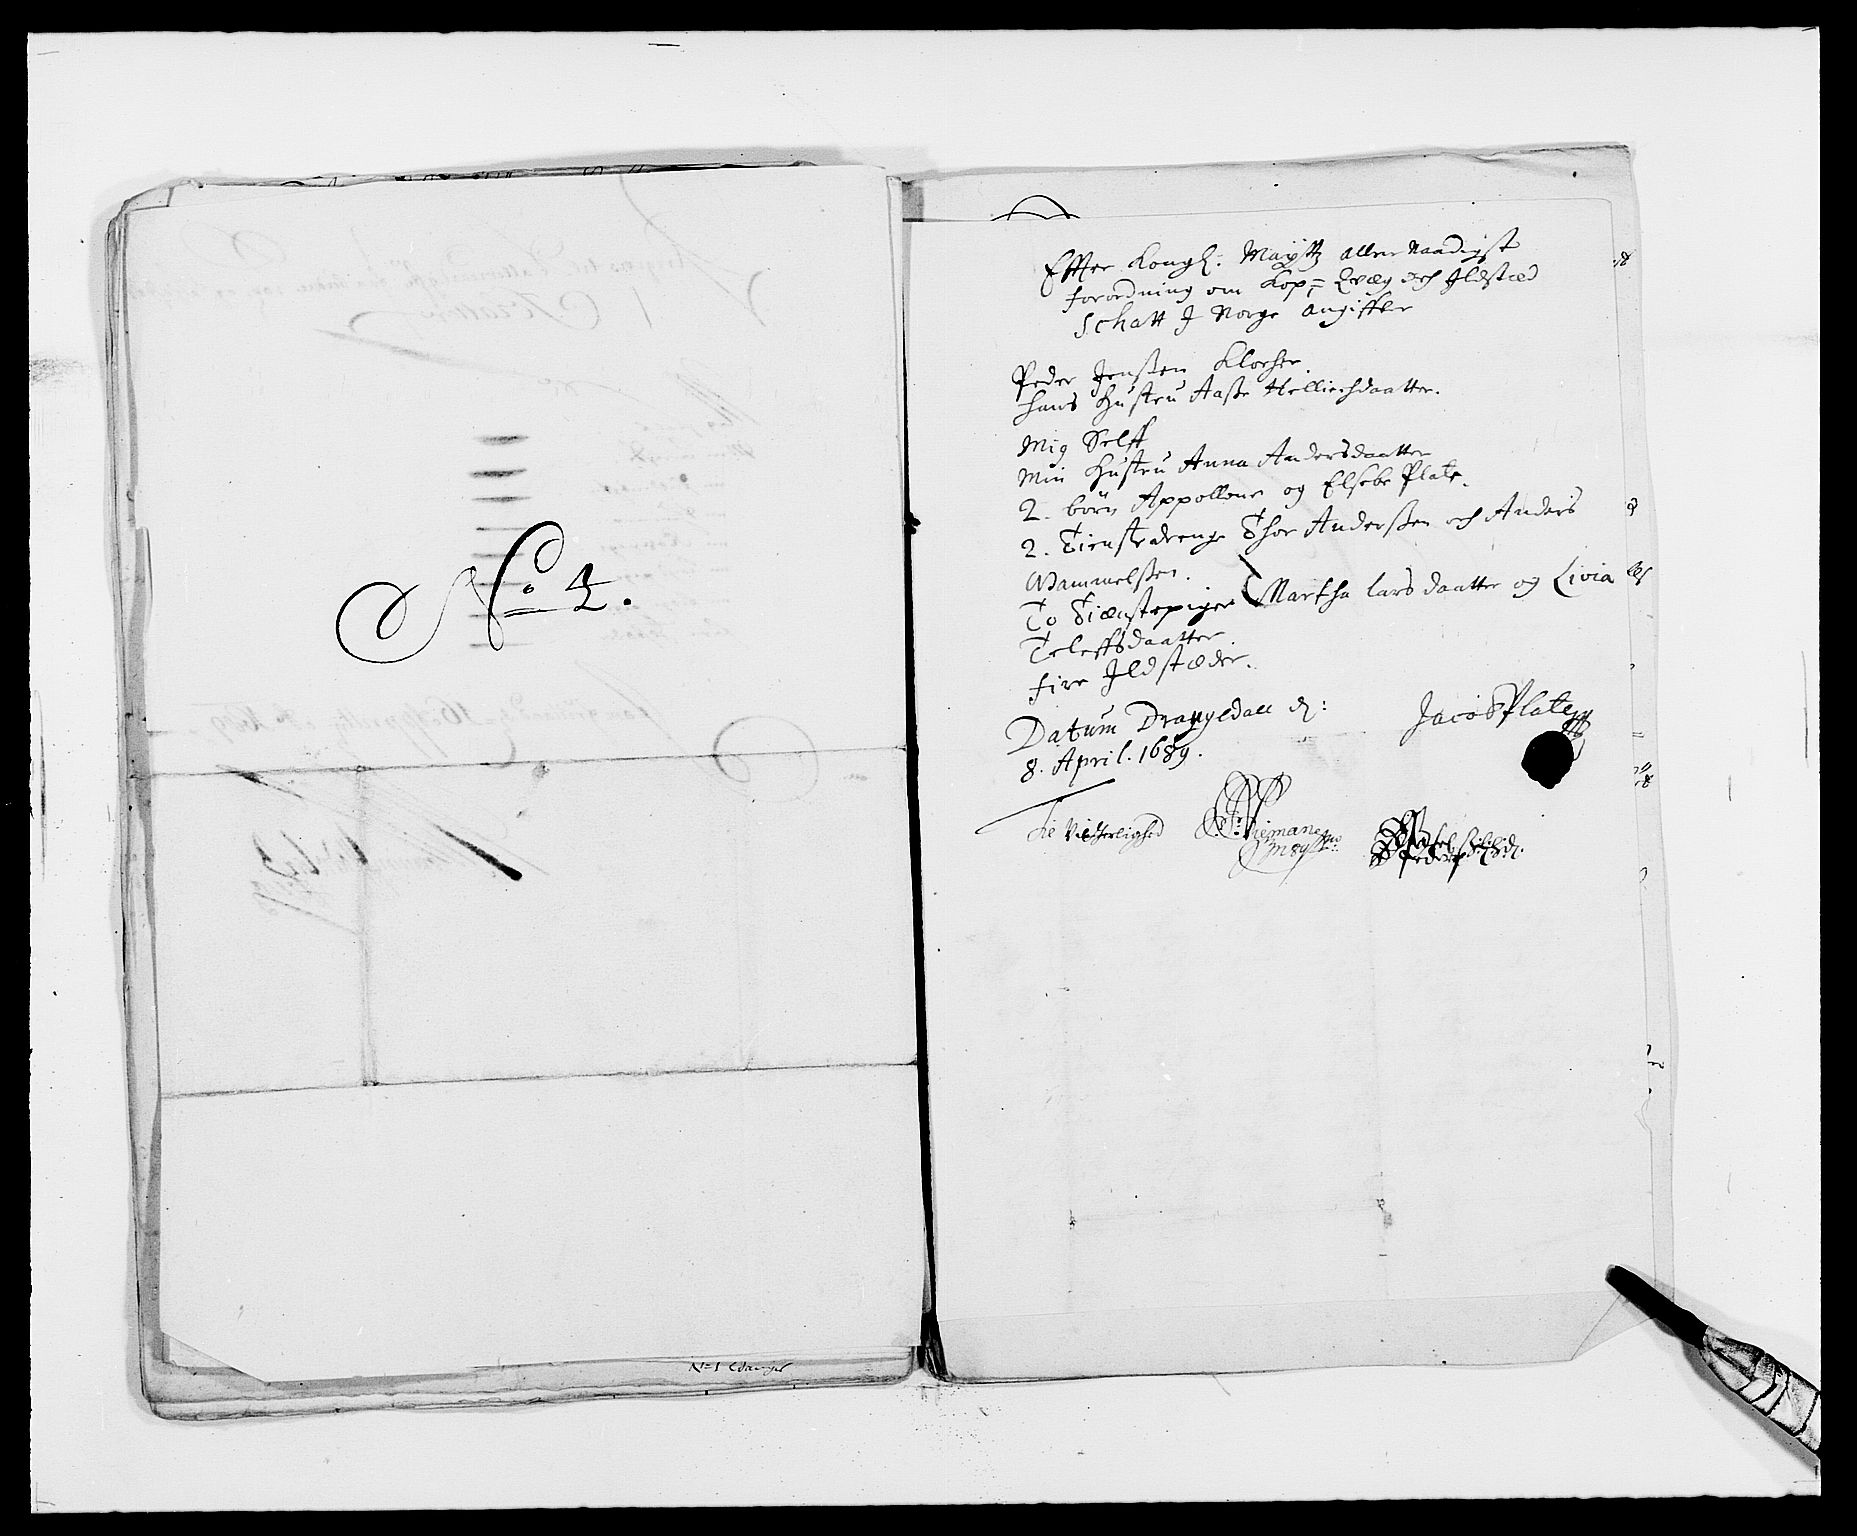 No 4.
Effter Kongl. Maÿttz aller Naadigst
forordning om Kop,= Qvæg och Ildstæd
Schatt J Norge angiffer
Peder Jenßen Klocher.
hans Hustru Aaße Helliechdaatter.
Mig Selff
Min Hustru Anna Andersdaatter
2. börn Appollone og Elsebe Plate.
2. Tienstedrenge Thor Anderßen och Anders
Wammelßen.
To Tiænstepiger Martha Lars daatter og Livia
Teleffsdaatter.
fire Jldstæder.
Datum Drangedall d:
8. April. 1689.
Jacob Plate
No 1